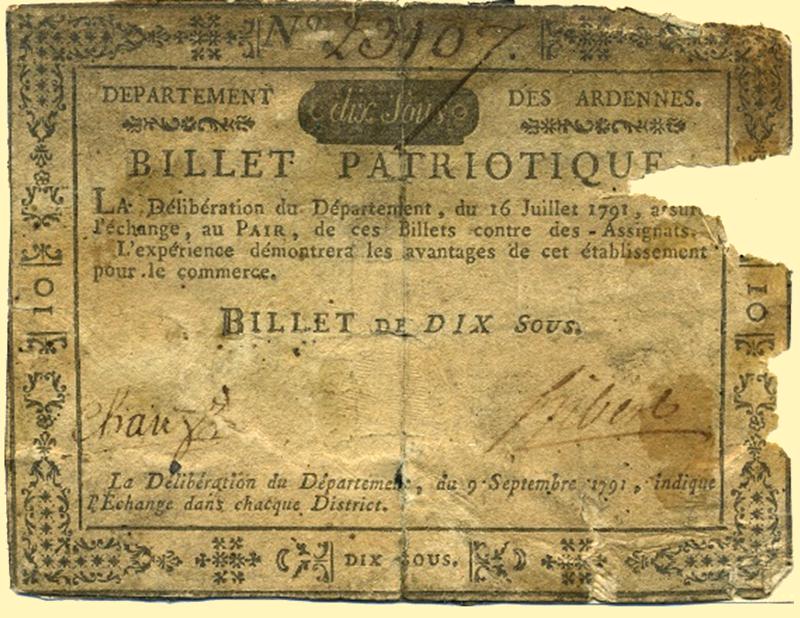 N.º 23107.
DEPARTEMENT dix Sous. DES ARDENNES.
BILLET PATRIOTIQUE
LA Délibération du Département, du 16 Juillet 1791, assur
l'échange, au PAIR, de ces Billets contre des-Assignats.
L'expérience démontrera les avantages de cet établissement
pour le commerce.
10
10
BILLET DE DIX Sous.
La Délibération du Département, du 9 Septembre 1791, indique
l'Échange dans chacque District.
DIX SOUS.